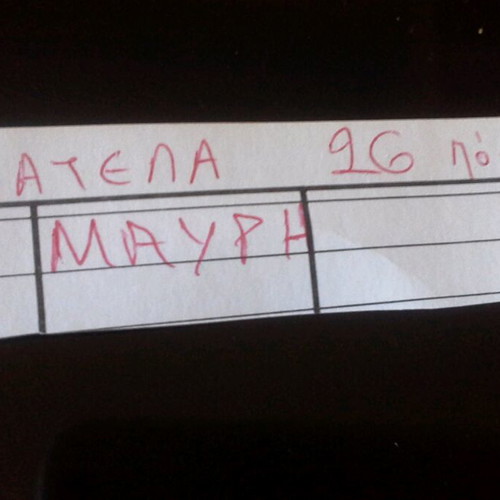 ΑΤΕΛΑ 26 πό
ΜΑΥΡΗ